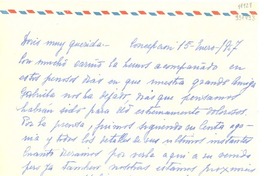 Doris muy querida - Concepción 15-Enero-/57
Con mucho cariño la hemos acompañado en
estos penosos días en que nuestra grande Amiga
Gabriela nos ha dejado, días que pensamos
habrán sido para Ud. extremamente dolorosos.
Por la prensa, fuimos siguiendo su lenta ago-
nía y todos los detalles de sus últimos instantes
Cuánto deseamos por verla aquí a su venida
que ya sabemos nosotras estamos